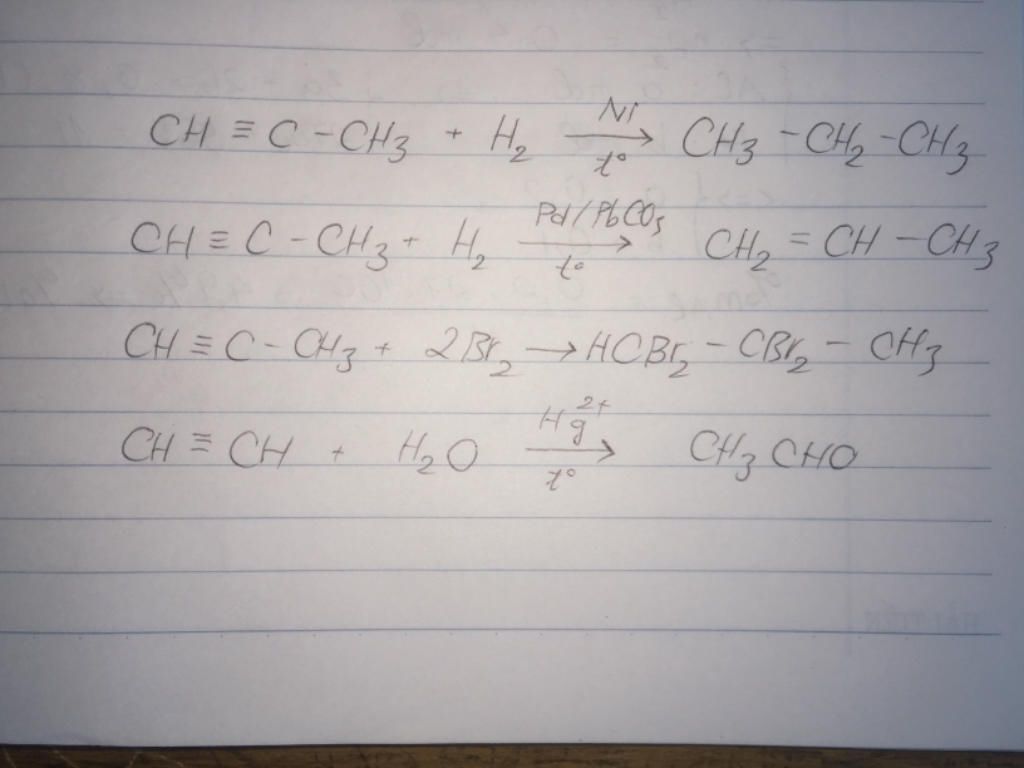 CH ≡ C - CH₃ + H₂ —Ni/t°→ CH₃ - CH₂ - CH₃
CH ≡ C - CH₃ + H₂ —Pd/PbCO₃/t°→ CH₂ = CH - CH₃
CH ≡ C - CH₃ + 2Br₂ → HCBr₂ - CBr₂ - CH₃
CH ≡ CH + H₂O —Hg²⁺/t°→ CH₃CHO